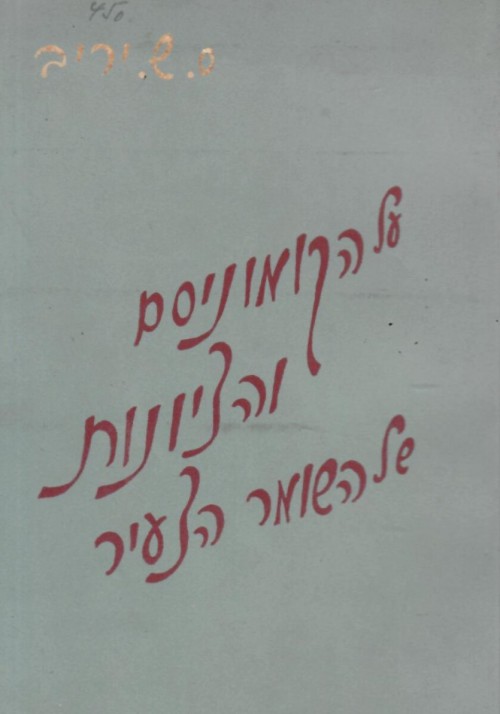 450
ס.ש.יריב
על הקומוניסם
והציונות
של השומר הצעיר